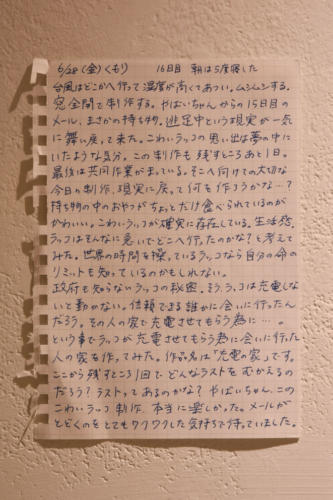 6/28(金)くもり　16日目　朝は5度寝した
台風はどこかへ行って湿度が高くてあつい。ムシムシする。
窓全開で制作する。やばいちゃんからの15日目の
メール、まさかの持ち物。逃走中という現実が一気
に舞い戻って来た。こわいラッコの思い出は夢の中に
いたような気分。この制作も残すところあと1日。
最後は共同作業がまっている。そこへ向けての大切な
今日の制作、現実に戻って何を作ろうかなー?
持ち物の中のおやつがちょとだけ食べられているのが
かわいい。こわいラッコが確実に存在している。生活感。
ラッコはそんなに急いでどこへ行ったのかな?と考えて
みた。世界の時間を操っているラッコなら自分の命の
リミットも知っているのかもしれない。
政府も知らないラッコの秘密。そう、ラッコは充電しな
いと動かない。信頼できる誰かに会いに行ったん
だろう。その人の家で充電させてもらう為に…。
という事でラッコが充電させてもらう為に会いに行った
人の家を作ってみた。作品名は「充電の家」です。
ここから残すところ1回でどんなラストをむかえるの
だろう?ラストってあるのかな?やばいちゃん、この
こわいラッコ制作、本当に楽しかった。メールが
とどくのをとてもワクワクした気持ちで待っていました。